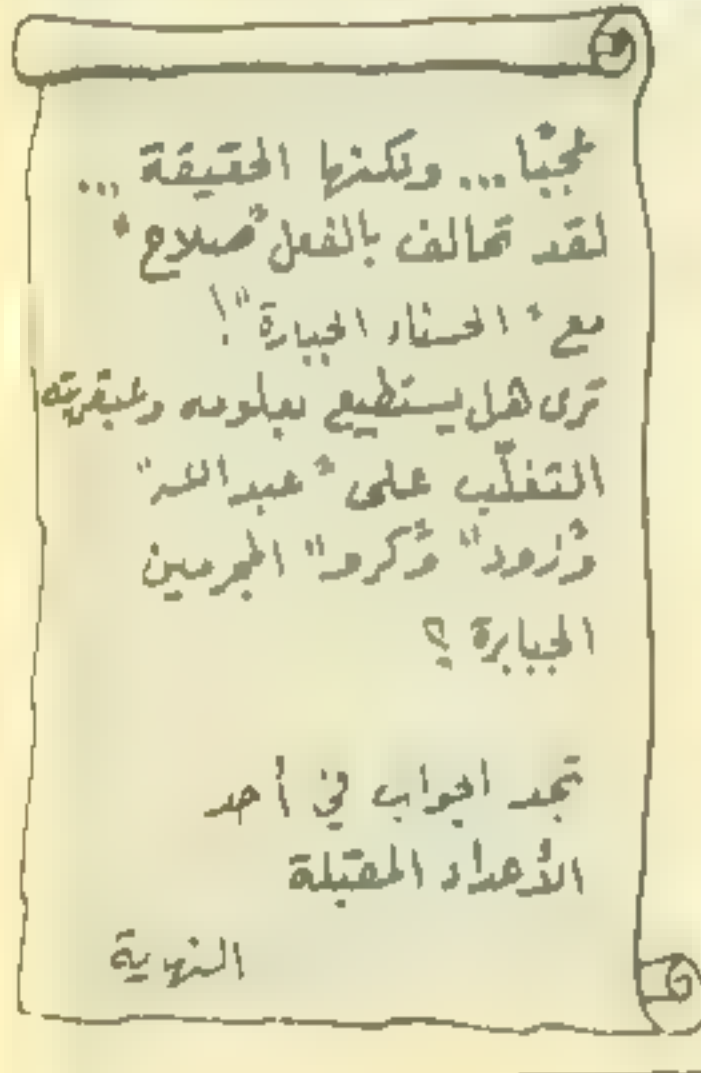 عجبًا... ولكنها الحقيقة...
لقد تحالف بالفعل "صلاح"
مع "الحسناء الجبارة"!
ترى هل يستطيع بعلومه وعبقريته
التغلّب على "عبدالله"
و"زود" و"كرو" المجرمين
الجبابرة ؟
تجد الجواب في أحد
الأعداد المقبلة
النهاية